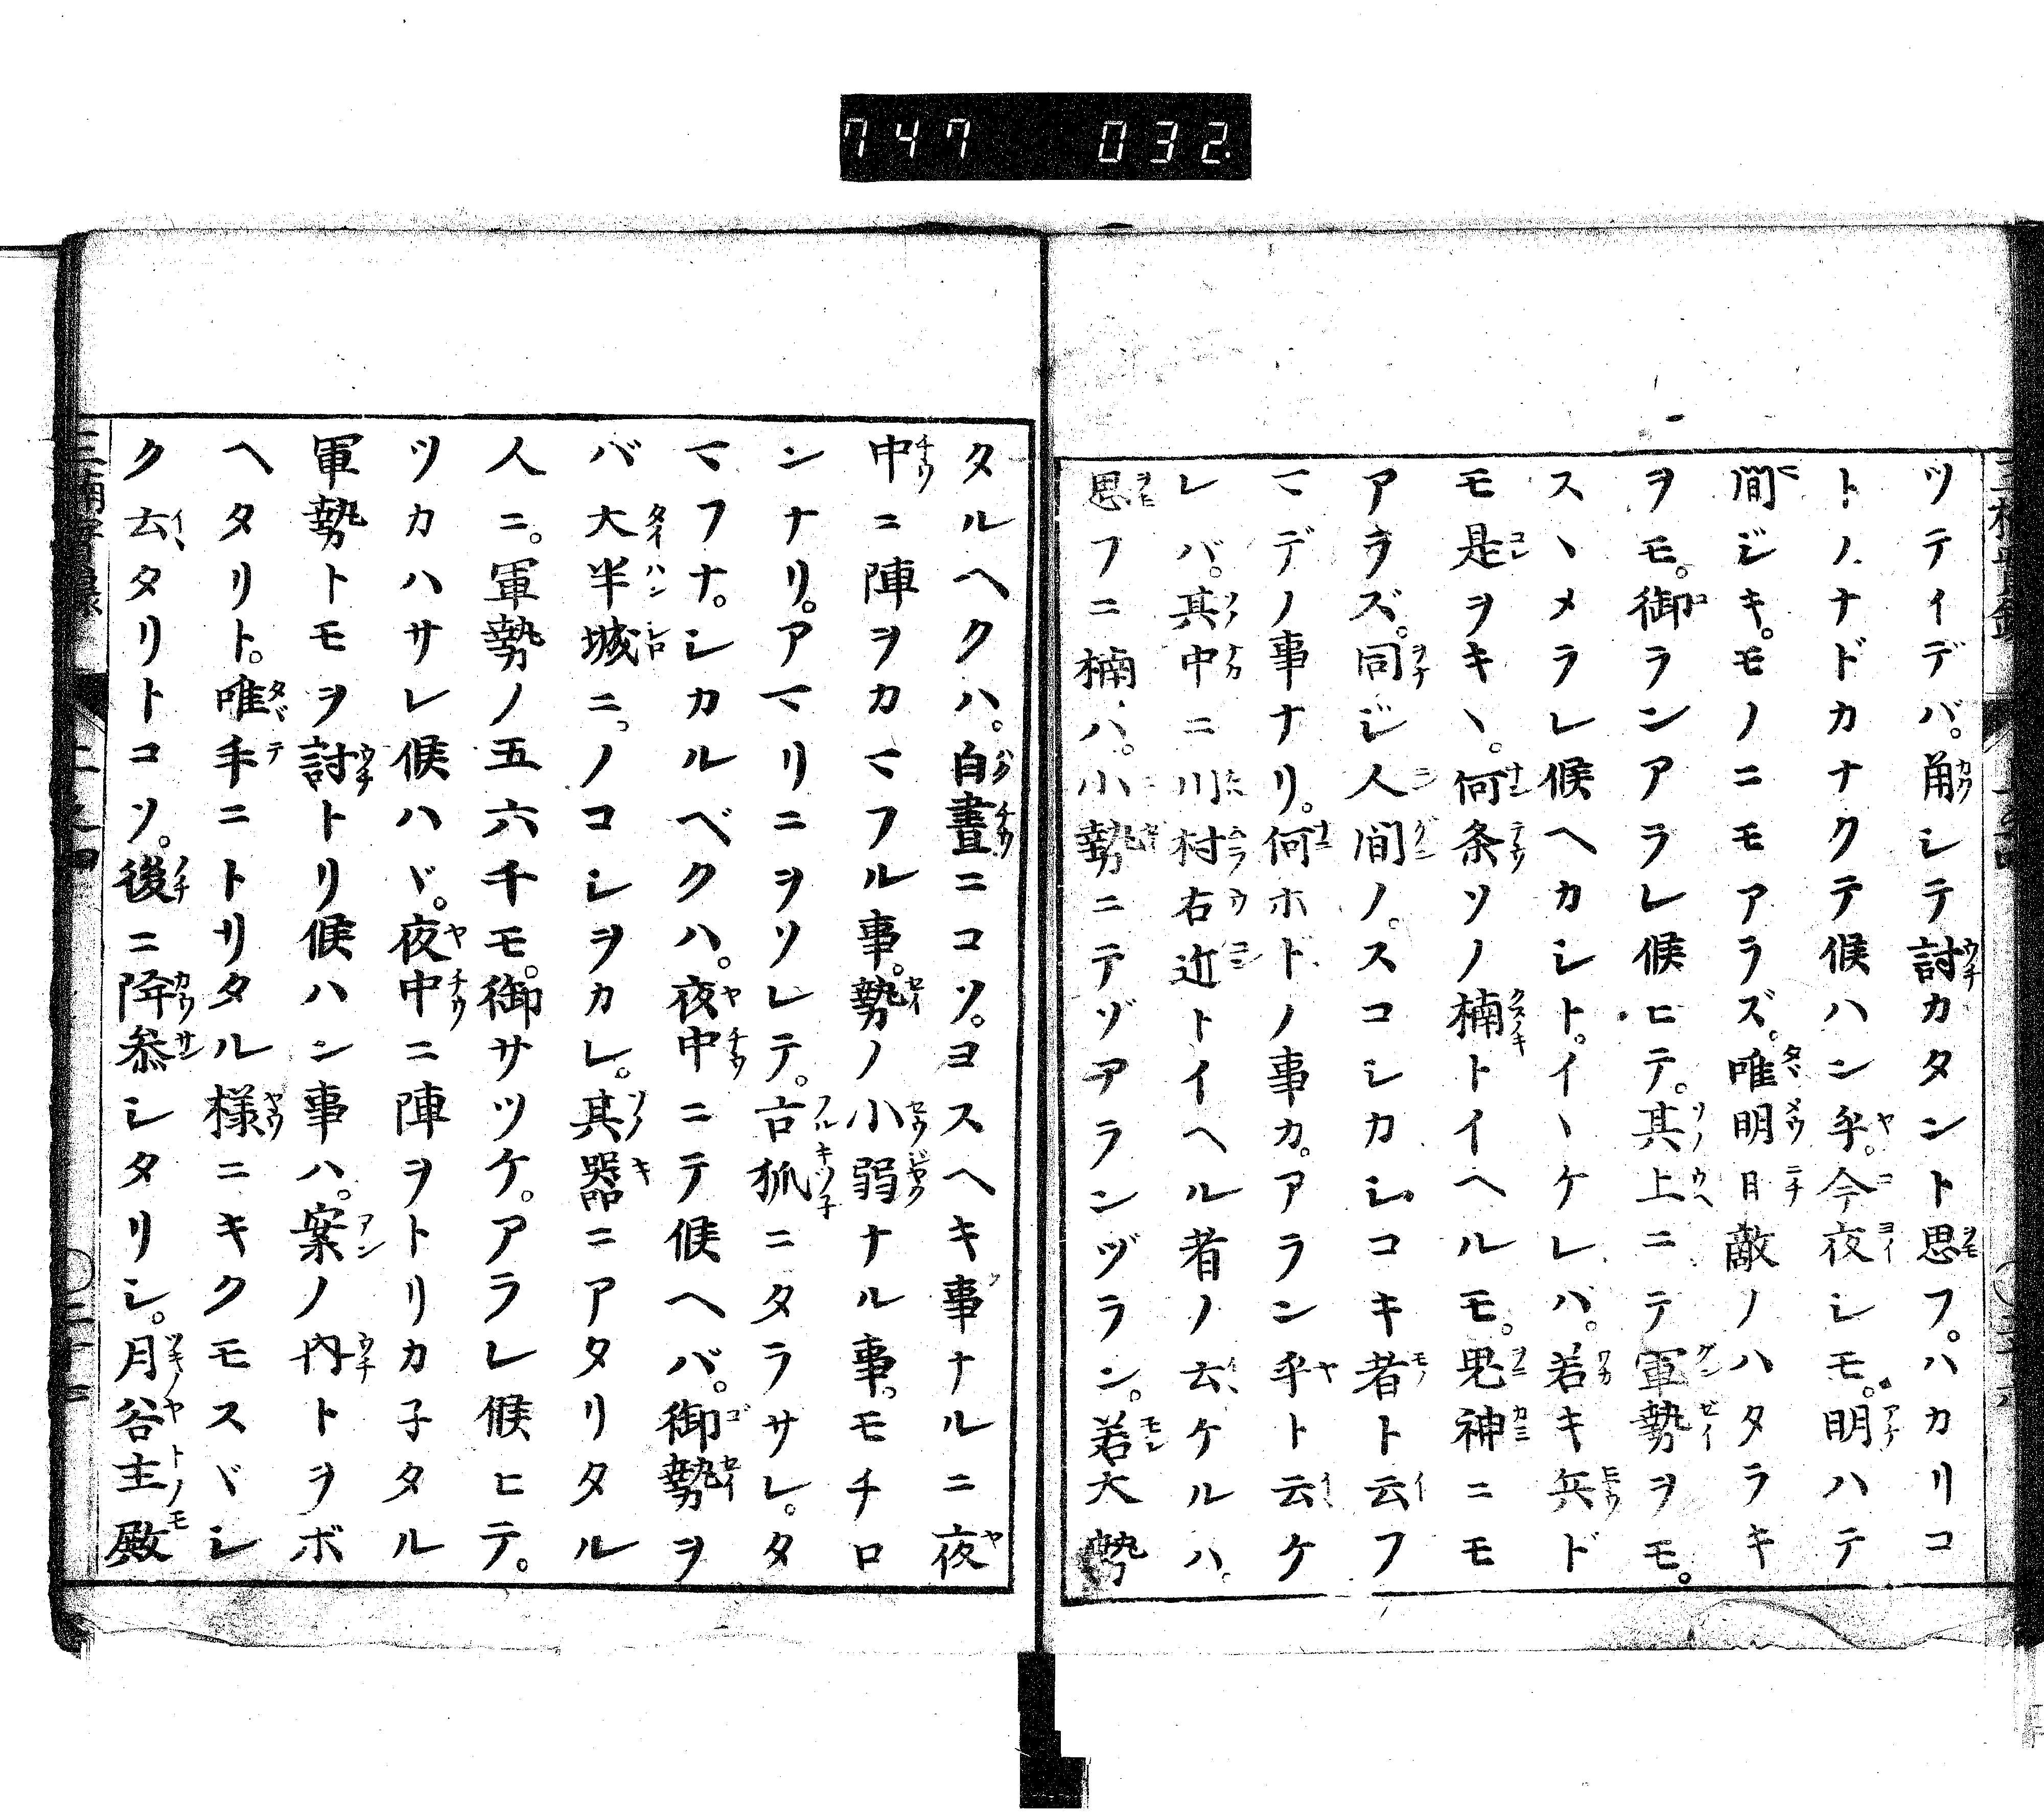 747 032
ツテイデバ。角シテ討カタント思フ。ハカリコ
トノナドカナクテ候ハン乎。今夜シモ。明ハテ
間ジキ。モノニモアラズ。唯明日敵ノハタラキ
ヲモ。御ランアラレ候ヒテ。其上ニテ軍勢ヲモ。
スヽメラレ候ヘカシト。イヽケレバ。若キ兵ド
モ是ヲキヽ。何条ソノ楠トイヘルモ。鬼神ニモ
アラズ。同ジ人間ノ。スコシカシコキ者ト云フ
マデノ事ナリ。何ホドノ事カ。アラン乎ト云ケ
レバ。其中ニ川村右近トイヘル者ノ云ケルハ。
思フニ楠ハ。小勢ニテゾアランヅラン。若大勢
タルヘクハ。白晝ニコソ。ヨスヘキ事ナルニ夜
中ニ陣ヲカマフル事。勢ノ小弱ナル事。モチロ
ンナリ。アマリニヲソレテ。古狐ニタラサレ。タ
マフナ。シカルベクハ。夜中ニテ候ヘバ。御勢ヲ
バ大半城ニ。ノコシヲカレ。其器ニアタリタル
人ニ。軍勢ノ五六千モ。御サツケ。アラレ候ヒテ。
ツカハサレ候ハヾ。夜中ニ陣ヲトリカ子タル
軍勢トモヲ討トリ候ハン事ハ。案ノ内トヲボ
ヘタリト。唯手ニトリタル様ニキクモスヾシ
ク云タリトコソ。後ニ降参シタリシ。月谷主殿